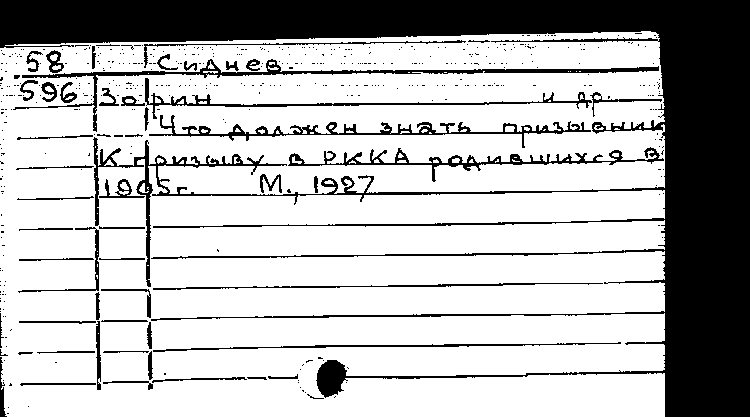 58 Сиднев.
596 Зорин и др.
Что должен знать призывник
К призыву в РККА родившихся в
1905г. М., 1927